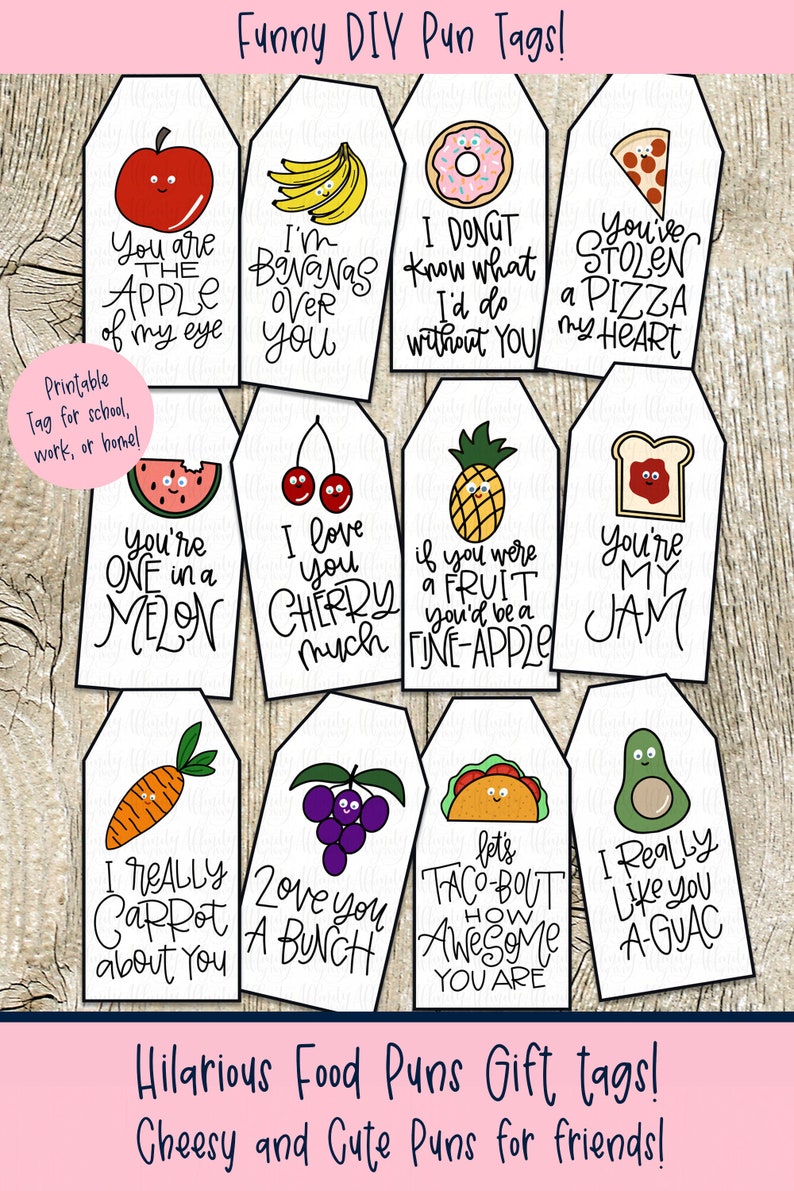 Funny DIY Pun Tags!
You are
THE
APPLE
of my eye
I'm
BANANAS
OVER
YOU
I DONUT
know what
I'd do
without YOU
You've
STOLEN
a PIZZA
my HEART
Printable
Tag for school,
work, or home!
you're
ONE in a
MELON
I love
you
CHERRY
much
if you were
a FRUIT
you'd be a
FINE-APPLE
you're
MY
JAM
I REALLY
CARROT
about YOU
Love you
A BUNCH
let's
TACO-BOUT
HOW
AWESOME
YOU ARE
I REALLY
LIKE YOU
A-GUAC
Hilarious Food Puns Gift tags!
Cheesy and Cute Puns for friends!